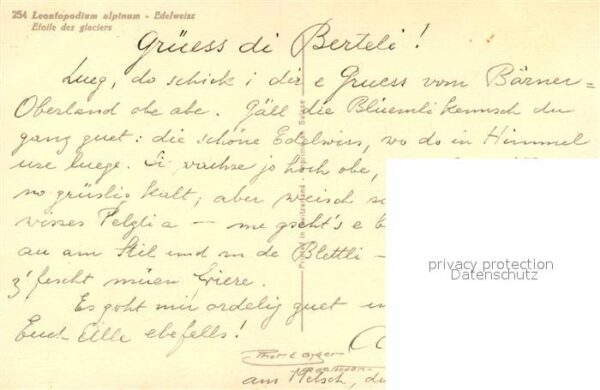 254 Leontopodium alpinum - Edelweiss
Etoile des glaciers
Grüess di Berteli!
Lueg, do schick i dir e Gruess vom Bärner=
Oberland obe abe. Gäll die Blüemli kennsch du
ganz guet: die schöne Edelwiss, wo do in Himmel
ufe luege. Si wachse jo höch obe,
no grüslig kalt, aber weisch
wisses Pelzli a — me gseht's e
au am Stil und an de Blettli —
z'fescht müen friere.
Es goht mir ordelig guet
Euch Allle ebefells!
am Rütsch,
Printed in Switzerland - Imprimé en Suisse
privacy protection
Datenschutz